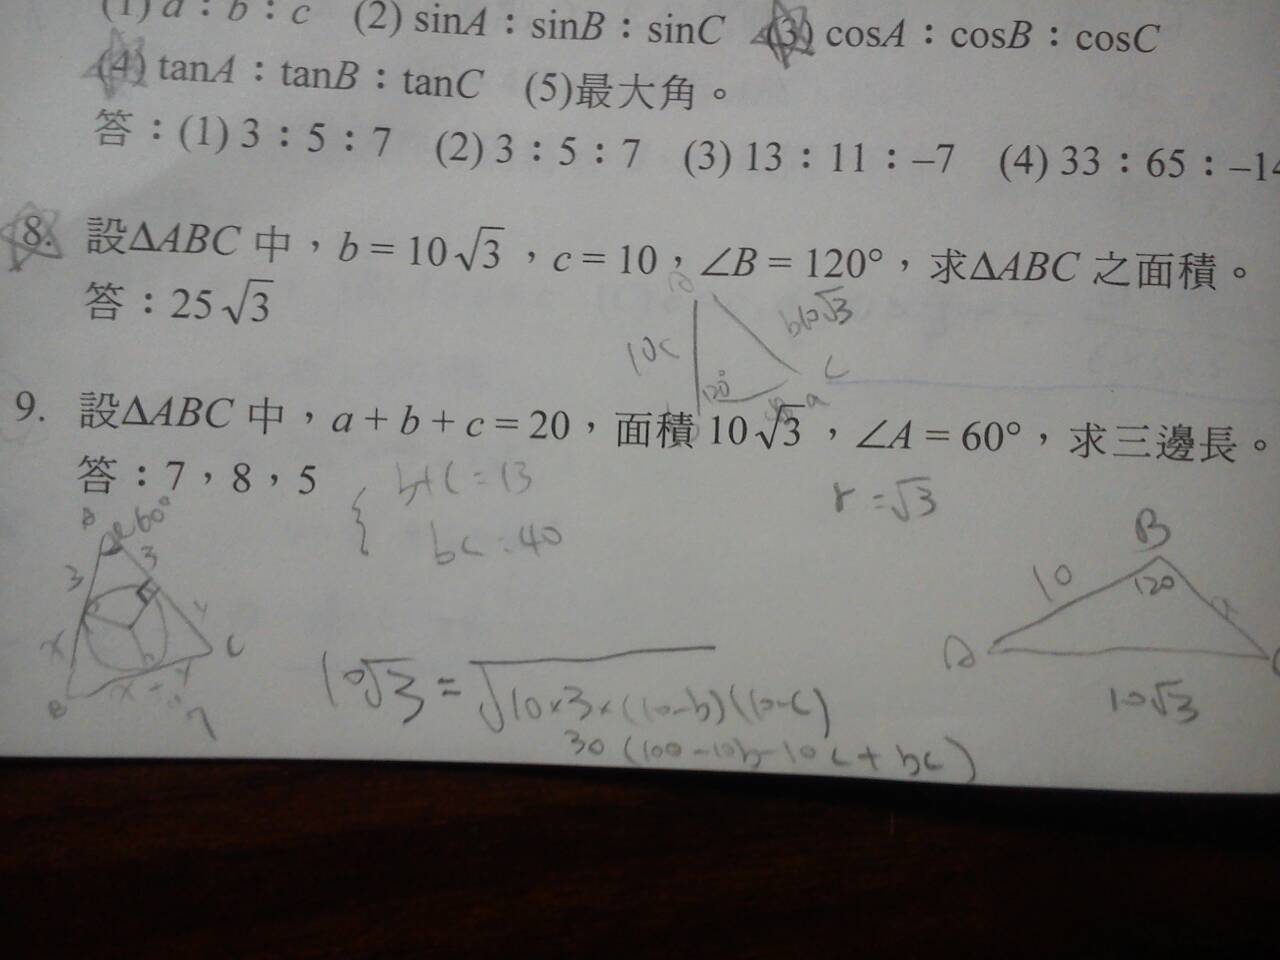 (1) a : b : c (2) sinA : sinB : sinC (3) cosA : cosB : cosC
(4) tanA : tanB : tanC (5)最大角。
答：(1) 3 : 5 : 7 (2) 3 : 5 : 7 (3) 13 : 11 : –7 (4) 33 : 65 : –14
8. 設ΔABC 中，b = 10√3，c = 10，∠B = 120°，求ΔABC 之面積。
答：25√3
10c 120° b10√3 C a
9. 設ΔABC 中，a + b + c = 20，面積 10√3，∠A = 60°，求三邊長。
答：7，8，5
b+c=13
bc=40
r=√3
60° 3 3 x y B C x+y=7
B 10 120 A 10√3
10√3 = √10×3×(10-b)(10-c)
30(100-10b-10c+bc)